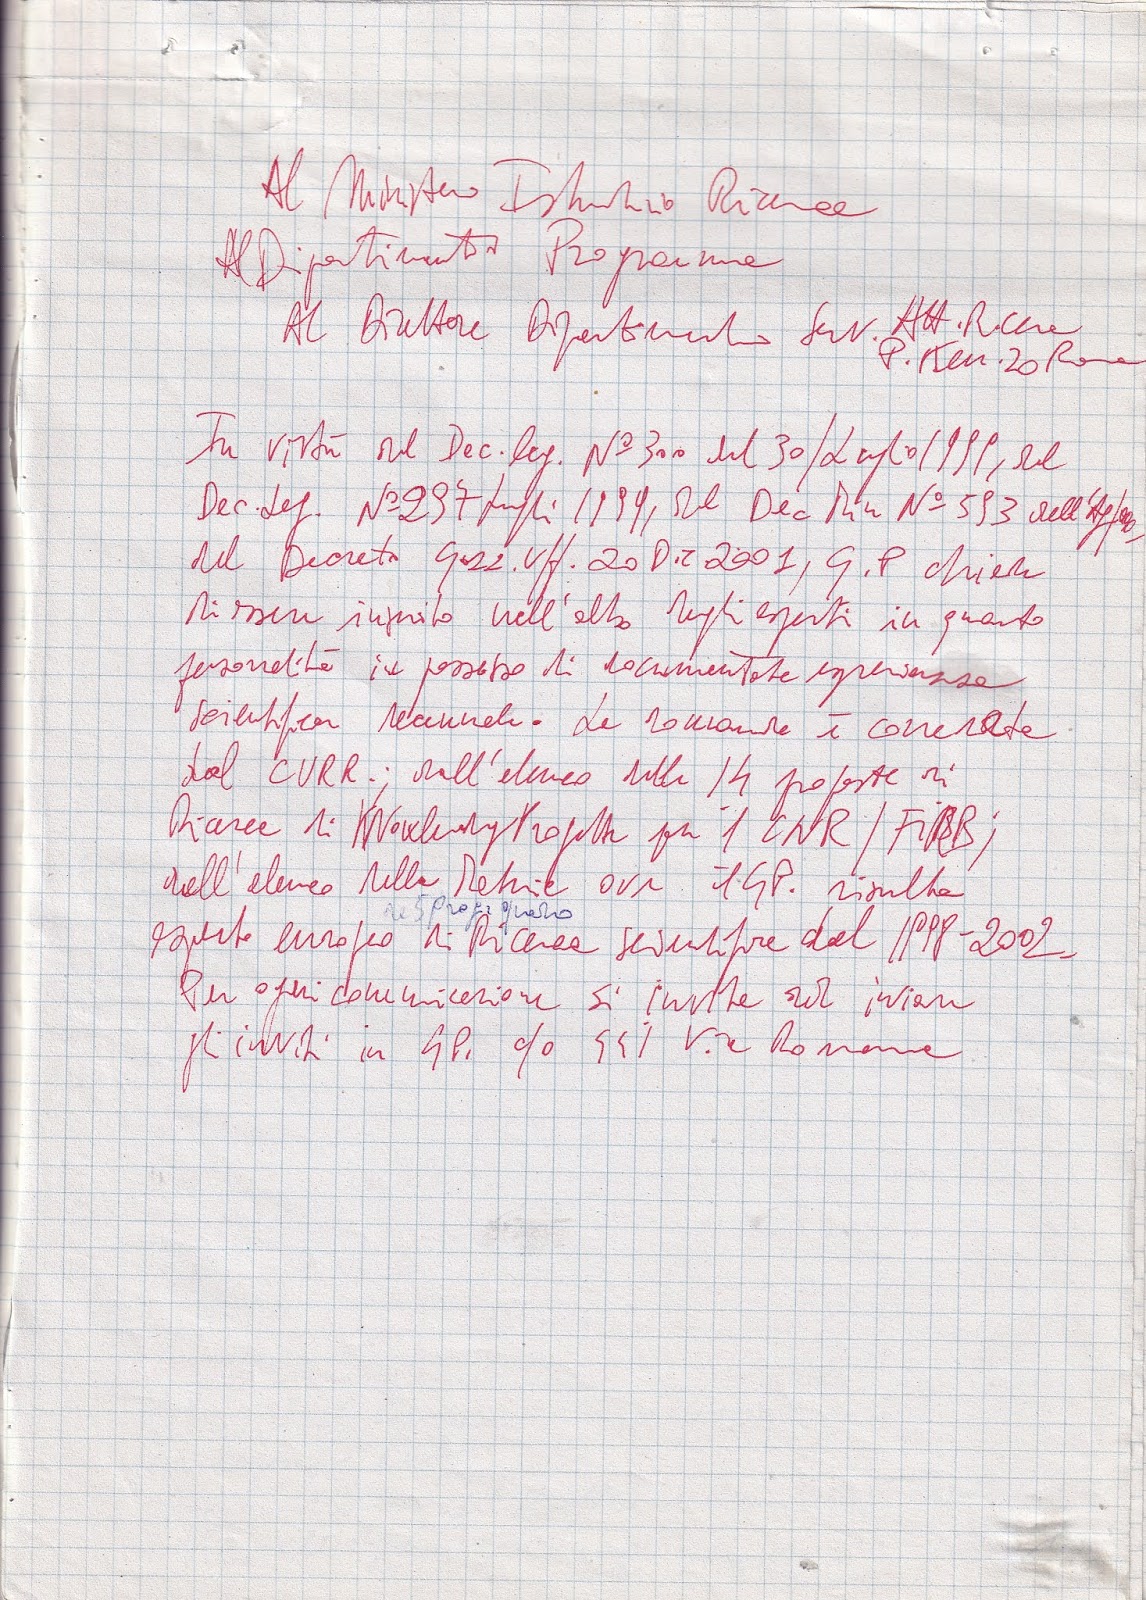 Al Ministero Istruzio Ricerca
Al Dipartimento Programma
Al Direttore Dipartimento Serv. Att. Ricerca
P. Ken. 20 Roma
In virtù del Dec. Leg. Nº 300 del 30/Luglio/1999, del
Dec. Leg. Nº 297 Lugli 1999, del Dec Min Nº 593 dell'
del Decreto Gazz. Uff. 20 Dic 2001, G.P chiede
di essere inserito nell'albo degli esperti in quanto
personalità in possesso di documentate esperienza
scientifica. La domanda è correlata
dal CURR.; dall'elenco delle 14 proposte di
Ricerca di per il CNR / FIRB;
dall'elenco della ove il GP. risulta
de 5 Prog. quadro
esperto europeo di Ricerca scientifica dal 1998-2002
Per ogni comunicazione si invita ad inviare
gli inviti in GP. c/o 551 Via Romana